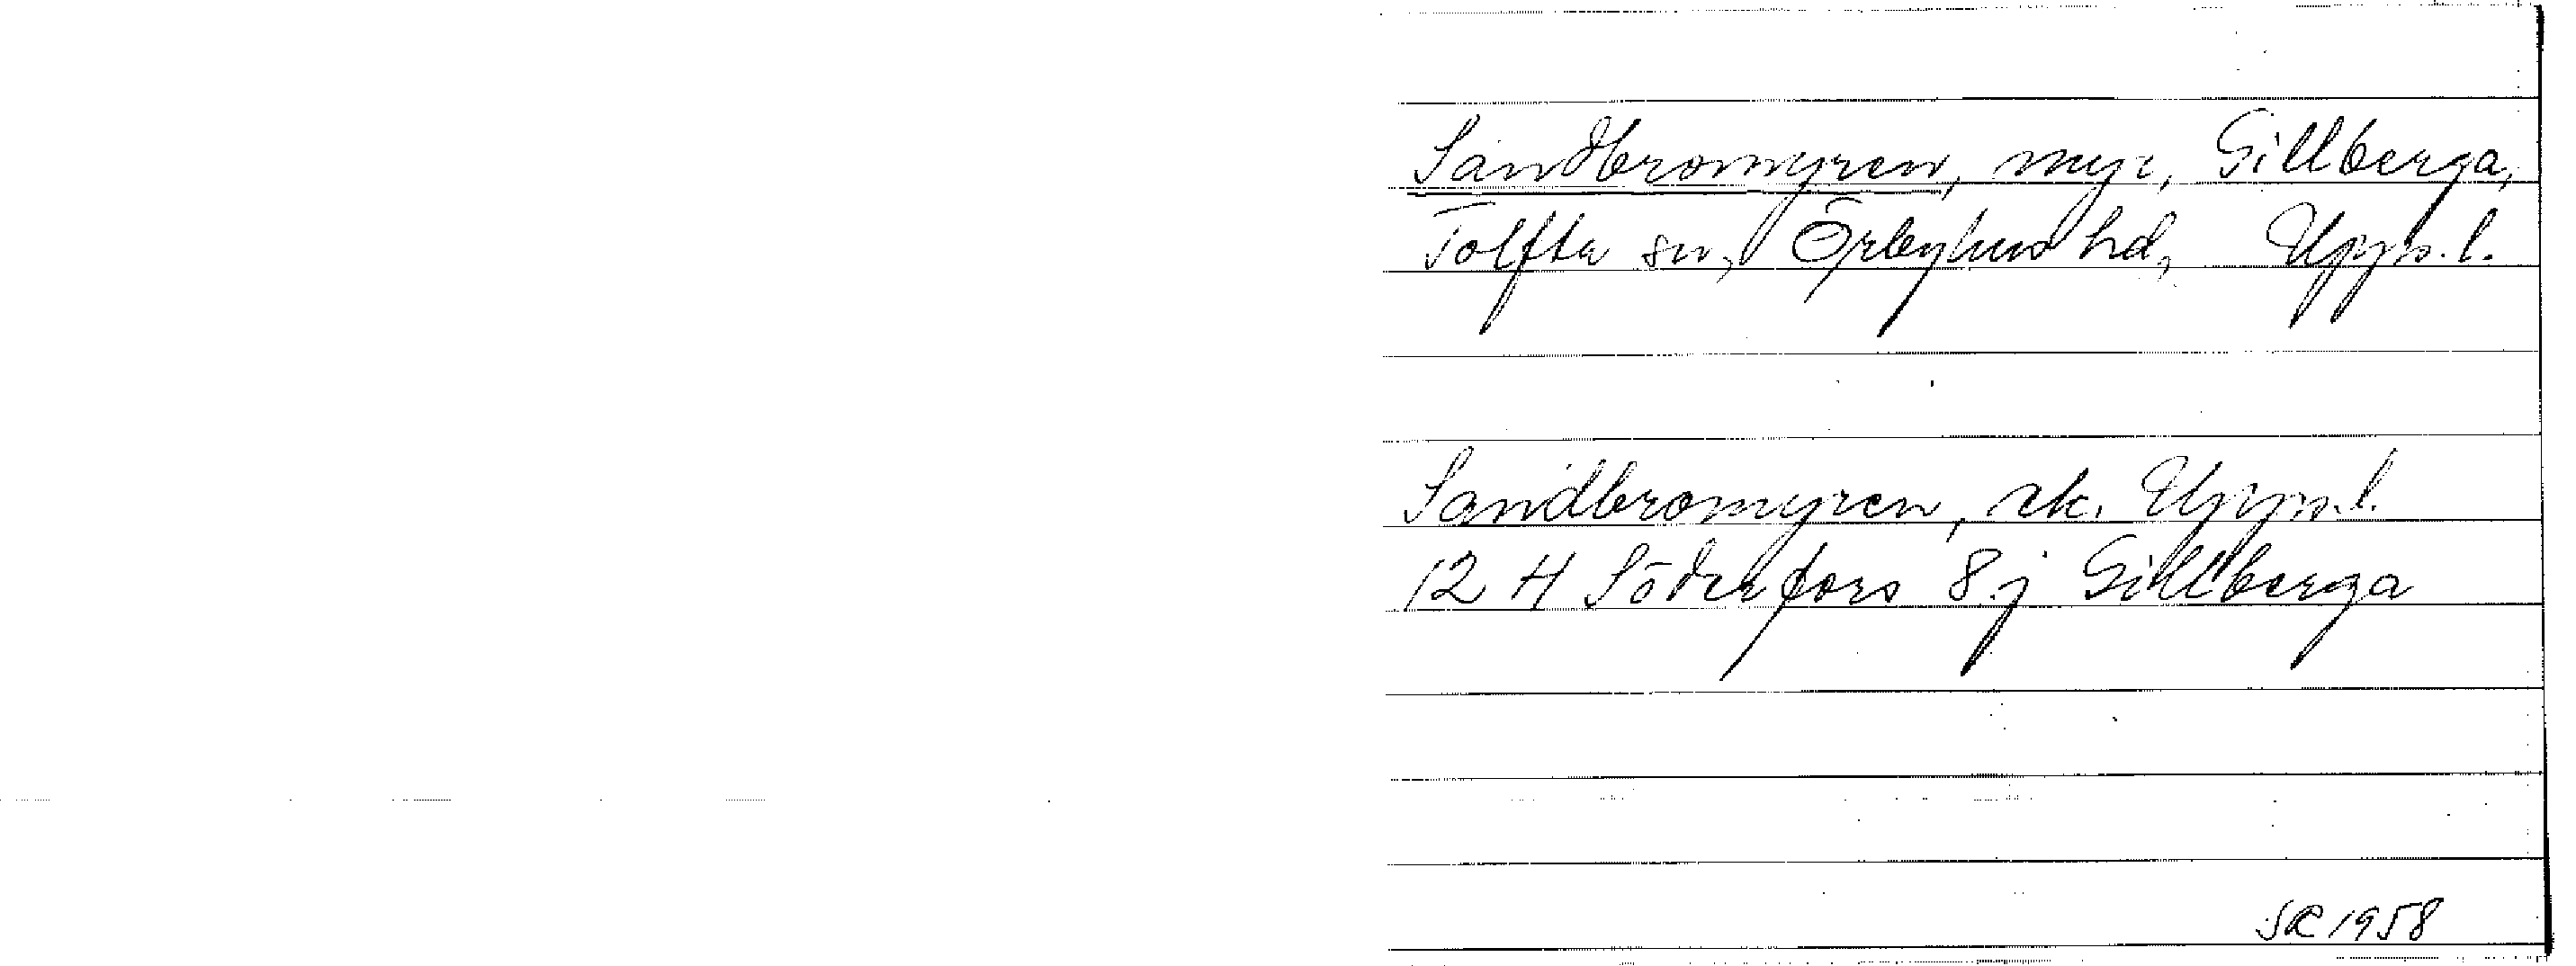 Sandbromyren, myr, Gillberga,
Tolfta sn, Örbyhus hd, Upps. l.
Sandbromyren, ek. Upps. l.
12 H Söderfors 8 j Gillberga
SR 1958